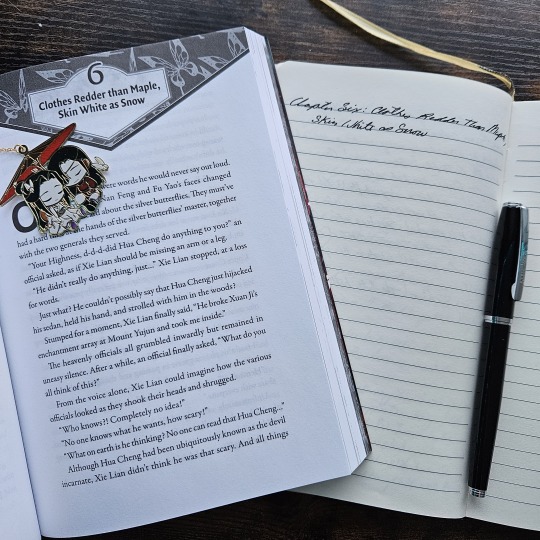 6
Clothes Redder than Maple,
Skin White as Snow
were words he would never say out loud.
an Feng and Fu Yao's faces changed
about the silver butterflies. They must've
had a hard
hands of the silver butterflies' master, together
with the two generals they served.
"Your Highness, d-d-d-did Hua Cheng do anything to you?" an
official asked, as if Xie Lian should be missing an arm or a leg.
"He didn't really do anything, just..." Xie Lian stopped, at a loss
for words.
Just what? He couldn't possibly say that Hua Cheng just hijacked
his sedan, held his hand, and strolled with him in the woods?
Stumped for a moment, Xie Lian finally said, "He broke Xuan Ji's
enchantment array at Mount Yujun and took me inside."
The heavenly officials all grumbled inwardly but remained in
uneasy silence. After a while, an official finally asked, "What do you
all think of this?"
From the voice alone, Xie Lian could imagine how the various
officials looked as they shook their heads and shrugged.
"Who knows?! Completely no idea!"
"No one knows what he wants, how scary!"
"What on earth is he thinking? No one can read that Hua Cheng..."
Although Hua Cheng had been ubiquitously known as the devil
incarnate, Xie Lian didn't think he was that scary. And all things
Chapter Six: Clothes Redder Than Maple,
Skin White as Snow